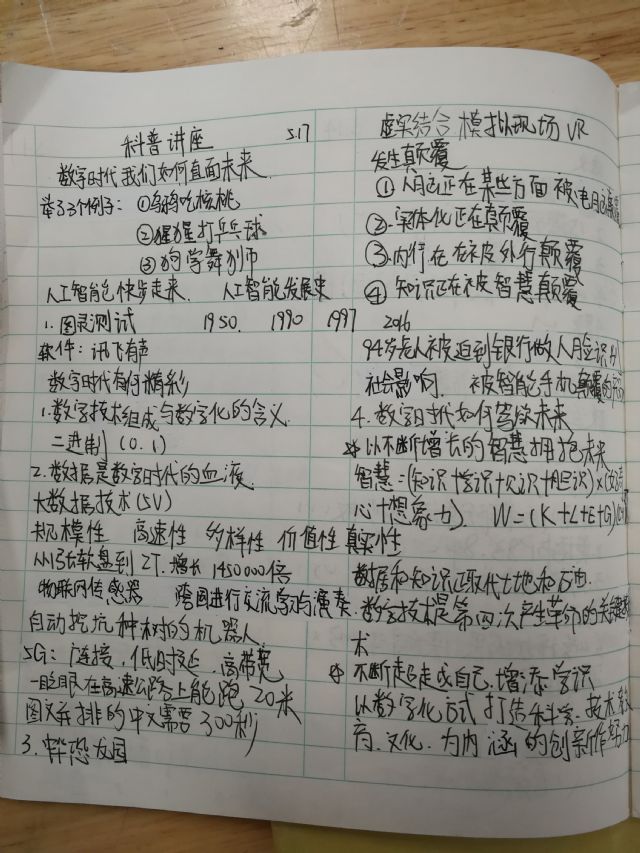 科普讲座 5.17
数字时代我们如何直面未来
举了3个例子：①乌鸦吃核桃
②猩猩打乒乓球
③狗学舞狮
人工智能快步走来 人工智能发展史
1. 图灵测试 1950. 1990 1997 2016
软件：讯飞有声
数字时代有何精彩
1.数字技术组成与数字化的含义
二进制（0.1）
2.数据是数字时代的血液
大数据技术（5V）
规模性 高速性 多样性 价值性 真实性
从1张软盘到2T.增长1450000倍
物联网传感器 跨国进行交流学习与演奏
自动挖坑种树的机器人
5G：广连接.低时延.高带宽
一眨眼在高速公路上能跑20米
图文并排的中文需要300秒
3. 恐龙园
虚实结合 模拟现场VR
发生颠覆
①人脸正在某些方面被电
②.实体化正在颠覆
③.内行在在被皮外行颠覆
④知识正在被智慧颠覆
94岁老人被迫到银行做人脸识别
社会影响. 被智能手机颠覆的
4.数字时代如何驾驭未来
以不断增长的智慧拥抱未来
智慧=(知识+学识+见识+胆识)×(好奇
心+想象力). W=(K+L+E+G)
数据和知识正取代土地和石油.
数字技术是第四次产生革命的关键
术
不断超越自己.增添学识
以数字化方式打造科学.技术
育.文化.为内涵的创新作